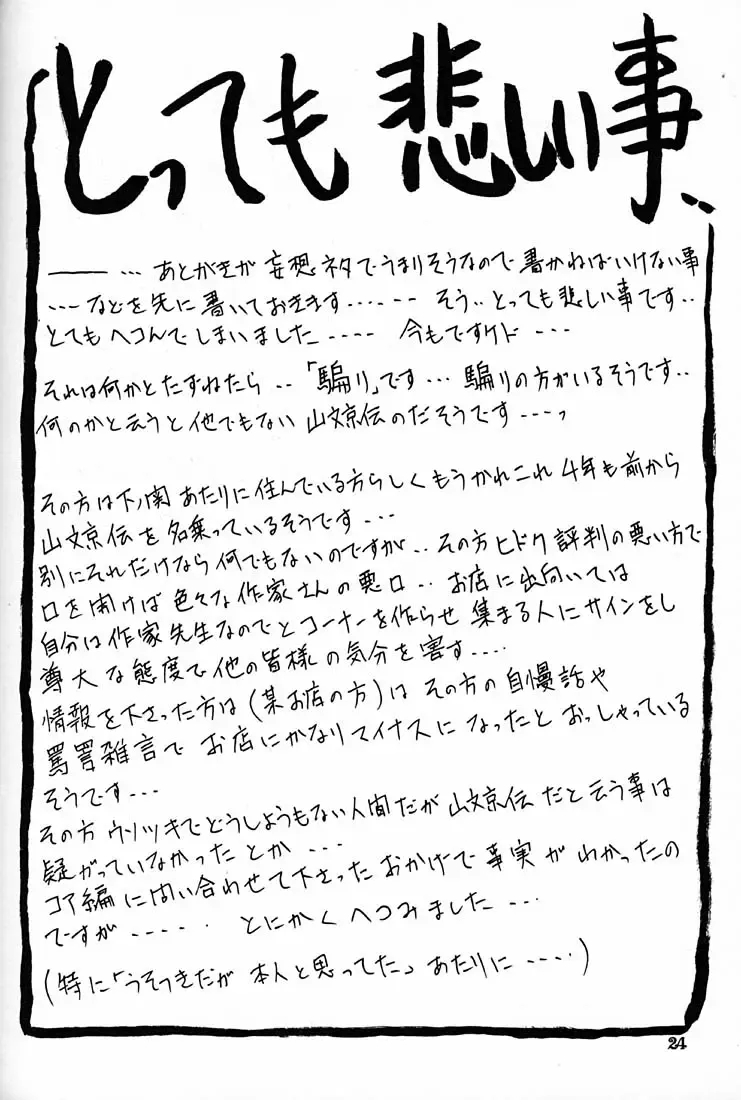 とっても悲しい事..
―― … あとがきが 妄想ネタでうまりそうなので 書かねばいけない事
…. などを先に書いておきます…... そう.. とっても悲しい事です..
とてもヘコんでしまいました ….. 今もですケド ….
それは何かとたずねたら .. 「騙り」です … 騙りの方がいるそうです..
何のかと云うと他でもない 山文京伝のだそうです ….っ
その方は下ノ関あたりに住んでいる方らしくもうかれこれ 4年も前から
山文京伝を名乗っているそうです …
別にそれだけなら何でもないのですが.. その方ヒドク評判の悪い方で
口を開けば色々な作家さんの悪口 .. お店に出向いては
自分は作家先生なのでとコーナーを作らせ 集まる人にサインをし
尊大な態度で他の皆様の気分を害す….
情報を下さった方は(某お店の方)は その方の自慢話や
罵詈雑言で お店にかなりマイナスに なったと おっしゃっている
そうです …
その方 ウソツキでどうしようもない人間だが 山文京伝だと云う事は
疑がっていなかったとか …
コア編に問い合わせて下さった おかげで 事実が わかったの
ですが ….. . とにかく へコみました ….
(特に「うそつきだが 本人と思ってた」 あたりに ….)
24